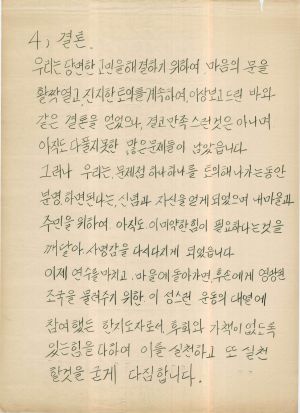 4, 결론.
우리는 당면한 고민을 해결하기 위하여, 마음의 문을
활짝열고, 진지한 토의를 계속하여, 이상보고드린 바와
같은 결론을 얻었으나, 결코 만족 스런것은 아니며
아직도 다룰지못한 많은문제들이 남았읍니다
그러나 우리는, 문제점 하나하나를 토의해 나가는동안
분명, 하면된다는, 신념과 자신을 얻게되었으며 내마을과
주민을 위하여 아직도 이미약한힘이 필요하다는것을
깨달아 사명감을 다시다지게 되었읍니다
이제 연수를 마치고, 마을에 돌아가면, 후손에게 영광된
조국을 물려주기 위한 이 성스런 운동의 대열에
참여했든 한지도자로서, 후회와 가책이 없도록
있는힘을 다하여 이를 실천하고 또 실천
할것을 굳게 다짐합니다.